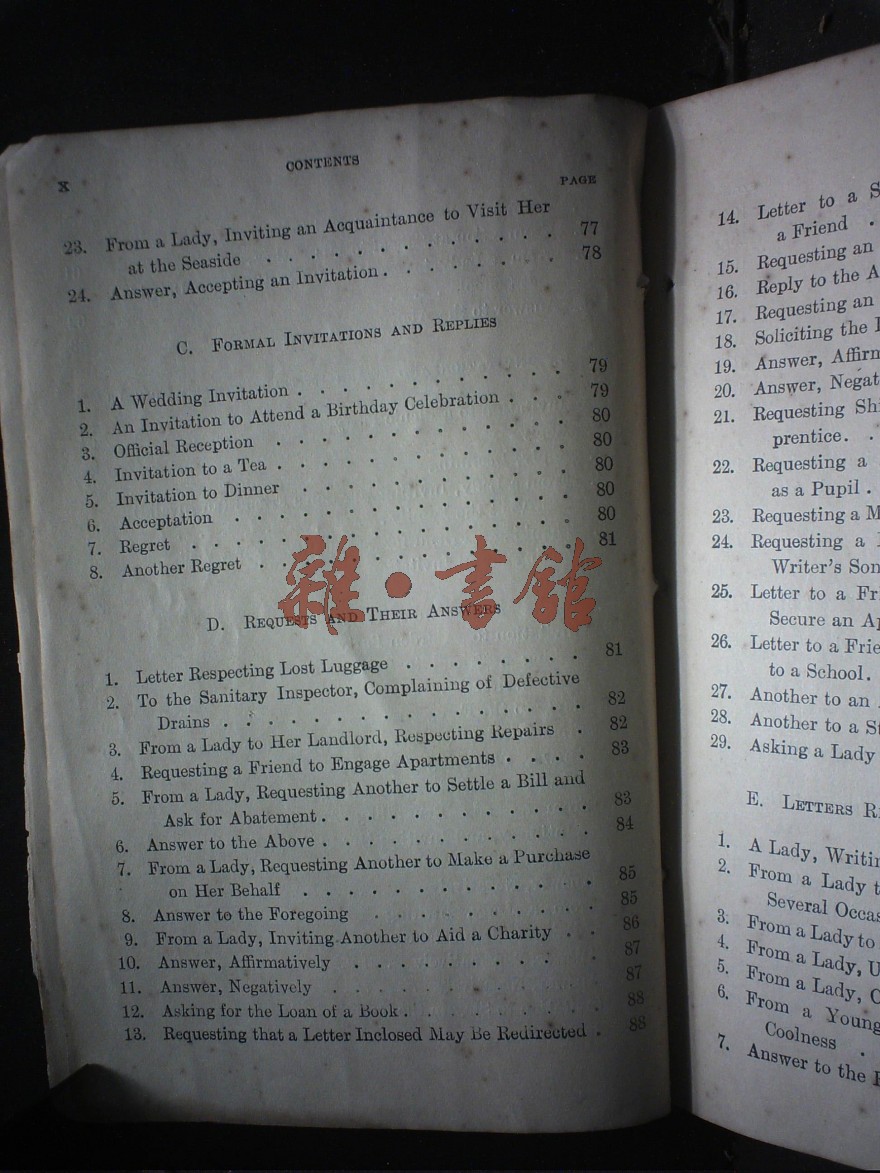 X
CONTENTS
PAGE
23. From a Lady, Inviting an Acquaintance to Visit Her
at the Seaside . . . . . . . . . . . . . 77
24. Answer, Accepting an Invitation . . . . . . . . 78
C. FORMAL INVITATIONS AND REPLIES
1. A Wedding Invitation . . . . . . . . . . 79
2. An Invitation to Attend a Birthday Celebration . . . 79
3. Official Reception . . . . . . . . . . . 80
4. Invitation to a Tea . . . . . . . . . . 80
5. Invitation to Dinner . . . . . . . . . . 80
6. Acceptation . . . . . . . . . . . . 80
7. Regret . . . . . . . . . . . . . 80
8. Another Regret . . . . . . . . . . . 81
雜·書館
D. REQUESTS AND THEIR ANSWERS
1. Letter Respecting Lost Luggage . . . . . . . . 81
2. To the Sanitary Inspector, Complaining of Defective
Drains . . . . . . . . . . . . . 82
3. From a Lady to Her Landlord, Respecting Repairs . 82
4. Requesting a Friend to Engage Apartments . . . . 83
5. From a Lady, Requesting Another to Settle a Bill and
Ask for Abatement . . . . . . . . . . 83
6. Answer to the Above . . . . . . . . . . 84
7. From a Lady, Requesting Another to Make a Purchase
on Her Behalf . . . . . . . . . . . 85
8. Answer to the Foregoing . . . . . . . . 85
9. From a Lady, Inviting Another to Aid a Charity . . 86
10. Answer, Affirmatively . . . . . . . . . 87
11. Answer, Negatively . . . . . . . . . . 87
12. Asking for the Loan of a Book . . . . . . . 88
13. Requesting that a Letter Inclosed May Be Redirected . 88
14. Letter to a S
a Friend .
15. Requesting an
16. Reply to the A
17. Requesting an
18. Soliciting the
19. Answer, Affirm
20. Answer, Negat
21. Requesting Shi
prentice. .
22. Requesting a
as a Pupil .
23. Requesting a M
24. Requesting a
Writer's Son
25. Letter to a Fri
Secure an Ap
26. Letter to a Frie
to a School.
27. Another to an
28. Another to a St
29. Asking a Lady
E. LETTERS R
1. A Lady, Writin
2. From a Lady t
Several Occas
3. From a Lady to
4. From a Lady, U
5. From a Lady, C
6. From a Young
Coolness .
7. Answer to the